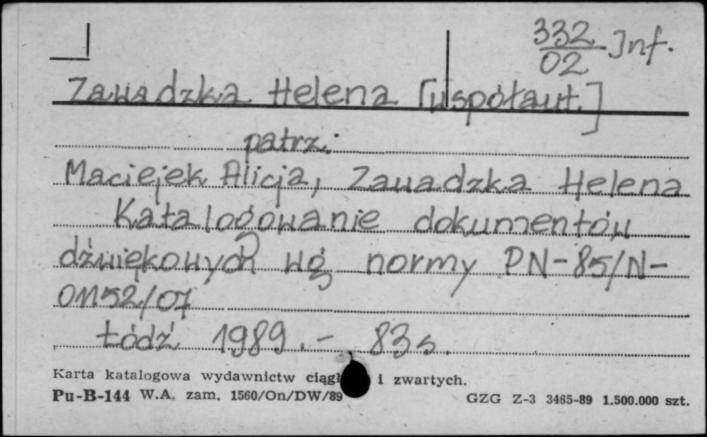 332 Inf.
02
Zawadzka Helena [współaut.]
patrz:
Maciejek Alicja, Zawadzka Helena
Katalogowanie dokumentów
dźwiękowych wg normy PN-85/N-
01152/07
Łódź 1989.- 83 s.
Karta katalogowa wydawnictw i zwartych.
Pu-B-144 W.A. zam. 1560/On/DW/89 GZG Z-3 3465-89 1.500.000 szt.